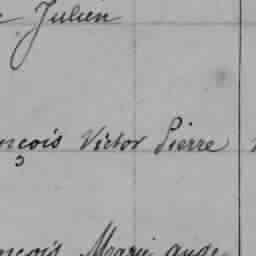 Julien
nçois Victor Pierre
nçois Marie ange